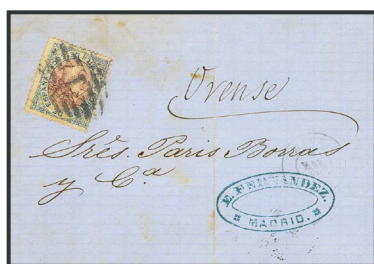 Orense
Srēs. Paris Borras
y Cª
E. FERNANDEZ.
MADRID.